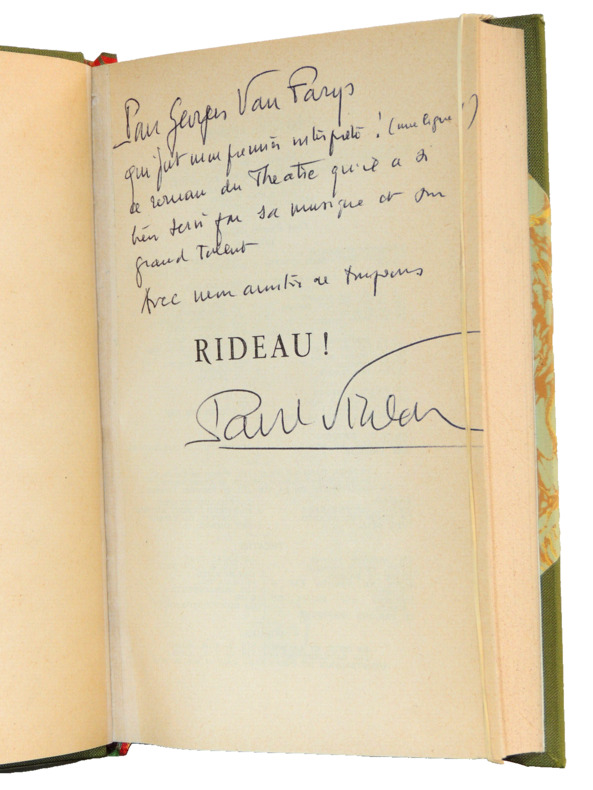 Pour Georges Van Parys
qui fut mon premier interprète ! (une ligne !)
ce roman du Theatre qu'il a si
bien servi par sa musique et son
grand talent
Avec mon amitié de toujours
RIDEAU !
Paul Vialar